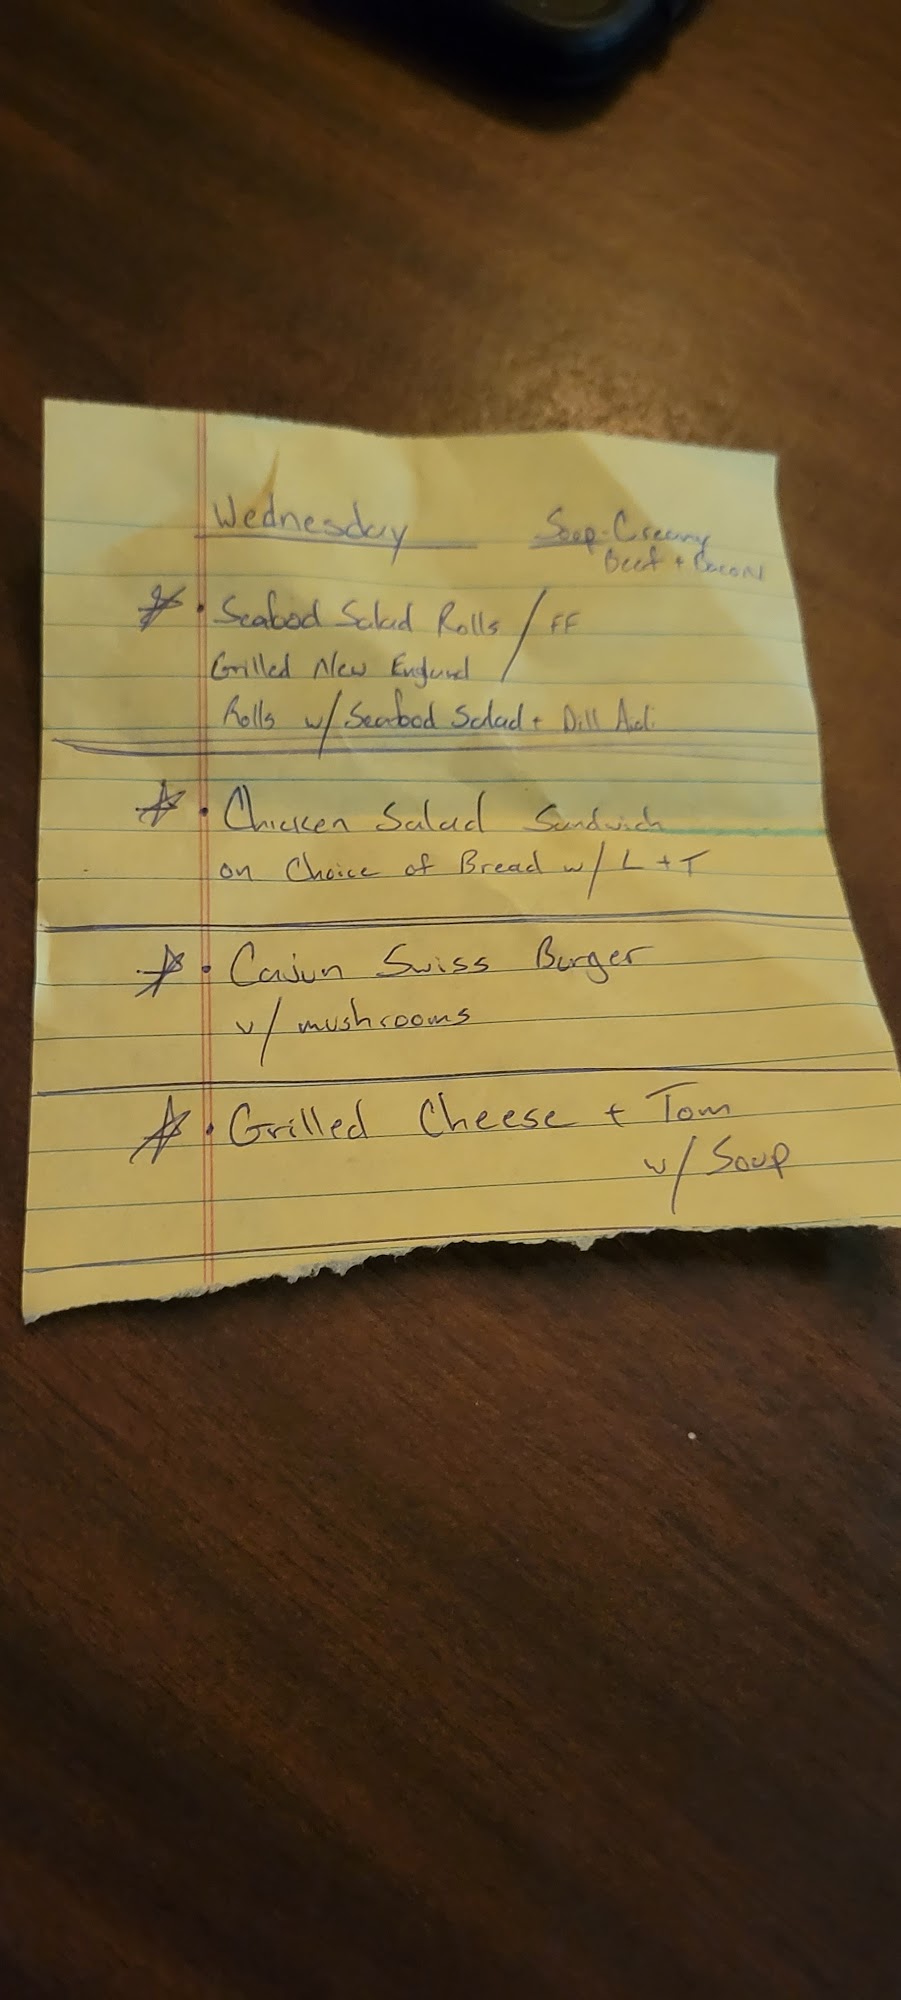 Wednesday
Soup-Creamy
Beef + Bacon
Seafood Salad Rolls / FF
Grilled New England
Rolls w/ Seafood Salad + Dill Aioli
Chicken Salad Sandwich
on Choice of Bread w/ L + T
Cajun Swiss Burger
w/ mushrooms
Grilled Cheese + Tom
w/ Soup